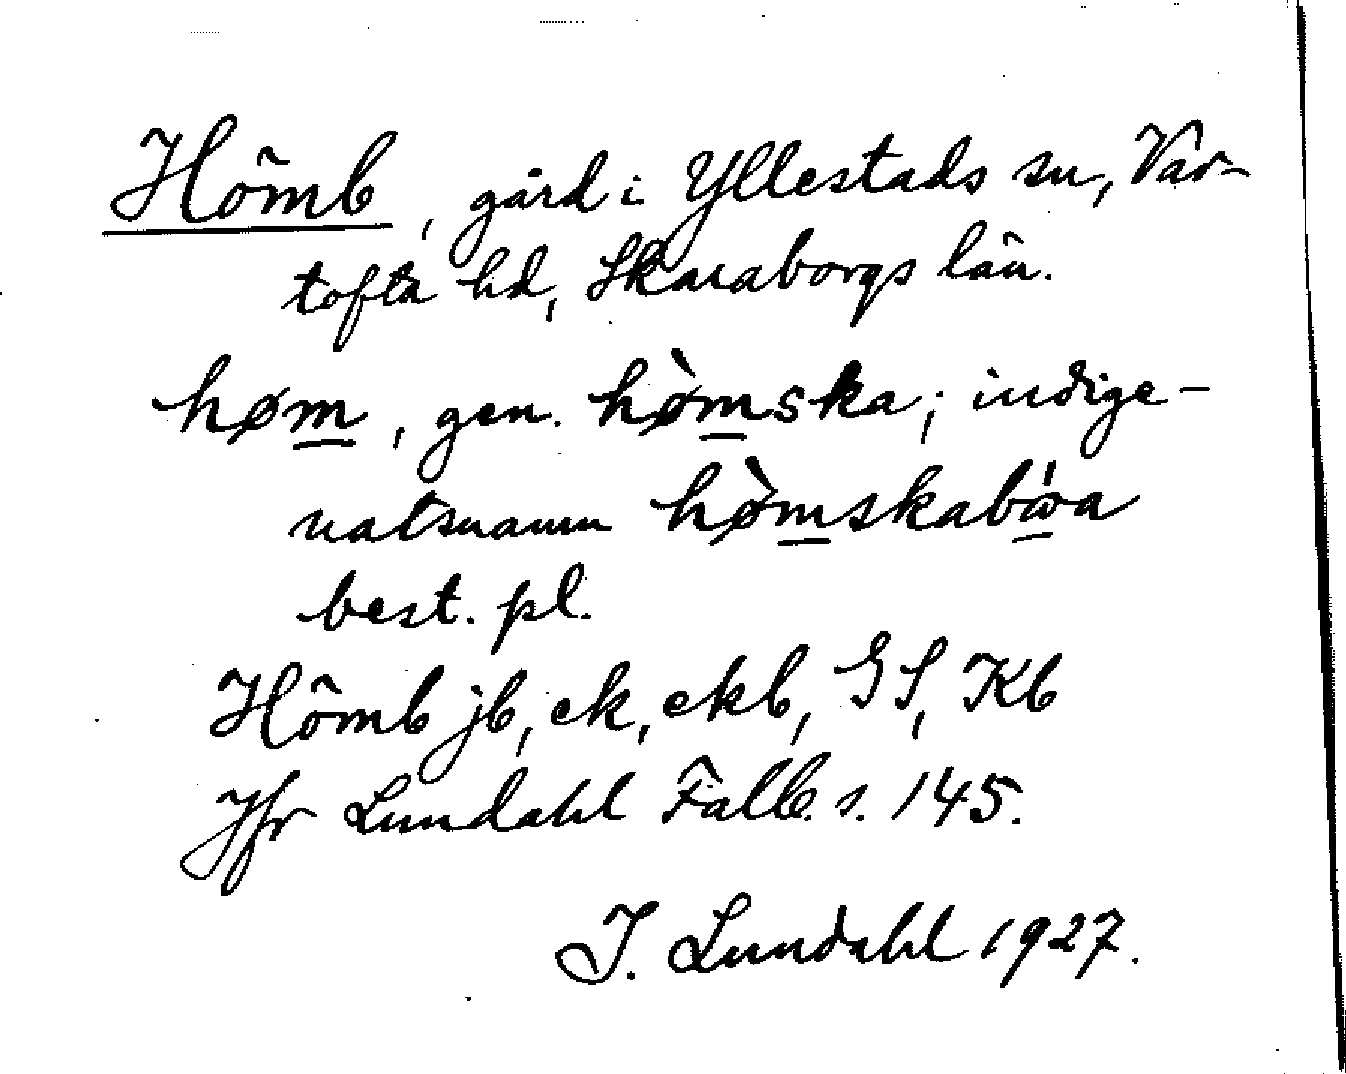 Hömb, gård i Yllestads sn, Var-
tofta hd, Skaraborgs län.
høm, gen. hø̀mska; indige-
natsnamn hø̀mskabóa
best. pl.
Hömb jb, ek, ekb, GS, Kb
Jfr Lundahl Falb. s. 145.
I. Lundahl 1927.